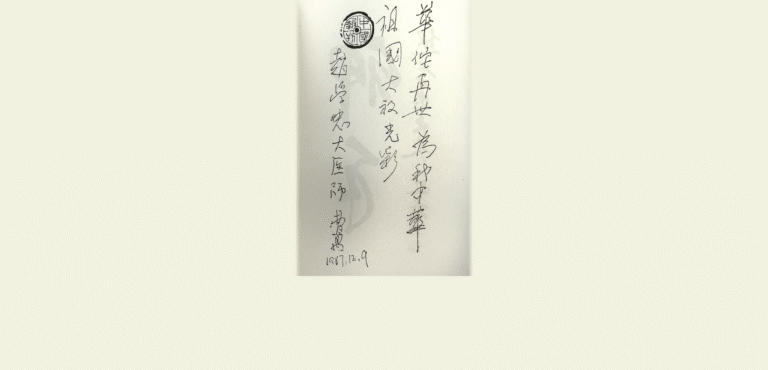 華佗再世為我中華
祖國大放光彩
趙學忠大医師
1987.12.9